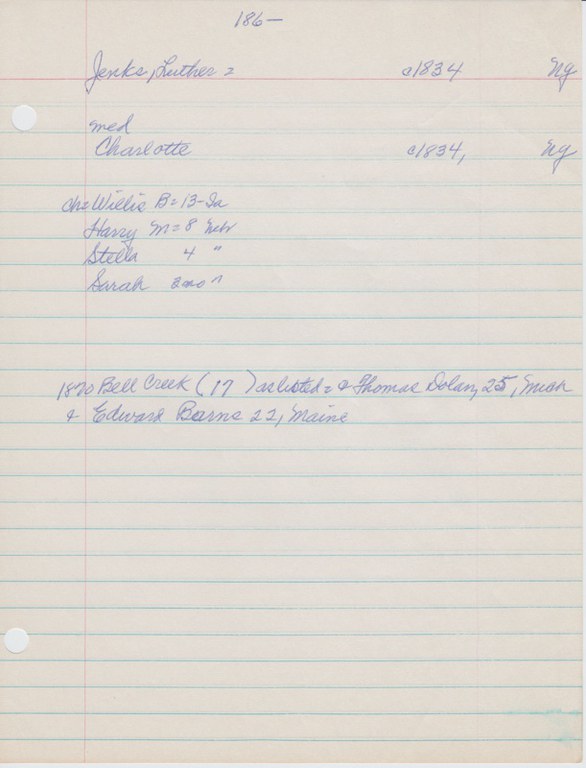 186—
Jenks, Luther = c1834 Ny
med
Charlotte c1834, Ny
ch= Willis B = 13 - Ia
Harry M = 8 Nebr
Stella 4 "
Sarah 2mo "
1870 Bell Creek (17) as listed = & Thomas Dolan, 25, Mich
& Edward Barns 22, Maine